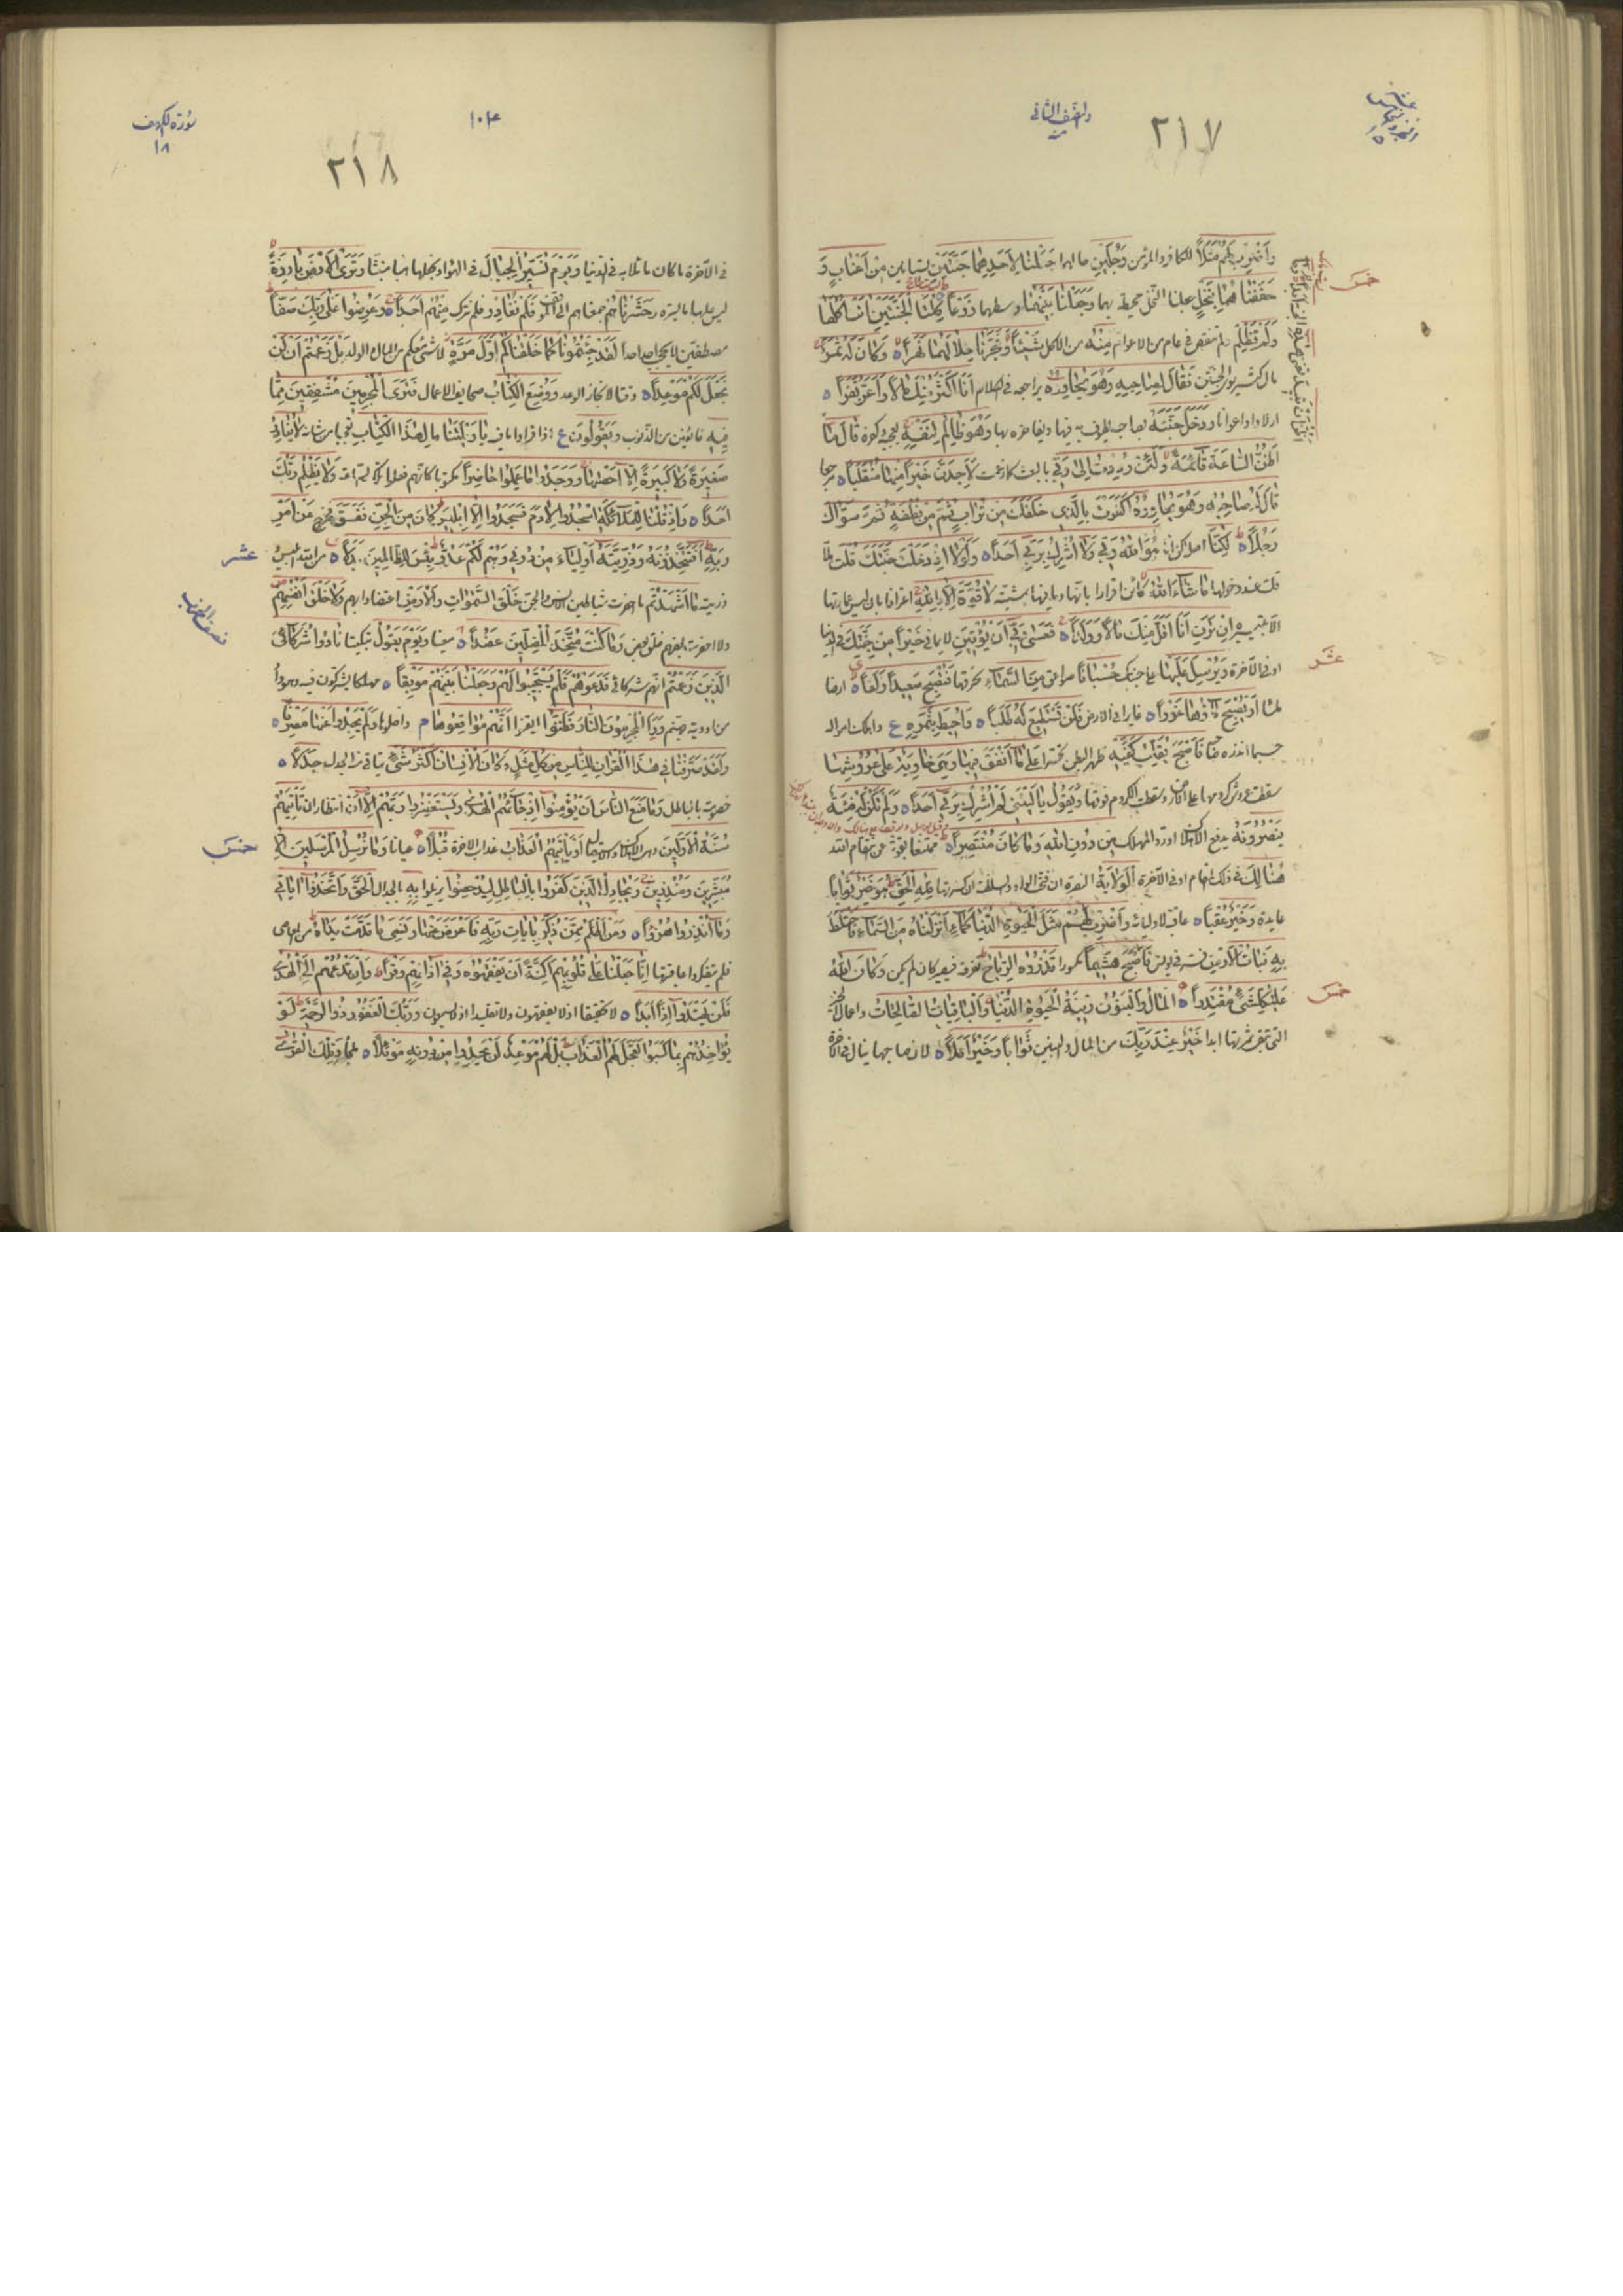 والنصف الثاني
٢١٧
وَاضْرِبْ لَهُمْ مَثَلاً للكافر والمؤمن رَجُلَيْنِ حالهما جَعَلْنا لِأَحَدِهِما جَنَّتَيْنِ بستانين مِنْ أَعْنابٍ وَ
حَفَفْناهُما بِنَخْلٍ جعلنا النخل محيطة بهما وَجَعَلْنا بَيْنَهُما وسطهما زَرْعاً كِلْتَا الْجَنَّتَيْنِ آتَتْ أُكُلَها
وَلَمْ تَظْلِمْ ولم تنقص في عام من الاعوام مِنْهُ من الاكل شَيْئاً وَفَجَّرْنا خِلالَهُما نَهَراً وَكانَ لَهُ ثَمَرٌ
مال كثير سوى الجنتين فَقالَ لِصاحِبِهِ وَهُوَ يُحاوِرُهُ يراجعه في الكلام أَنَا أَكْثَرُ مِنْكَ مالاً وَأَعَزُّ نَفَراً
اولادا واعوانا وَدَخَلَ جَنَّتَهُ بصاحبه يطوف به فيها ويفاخره بها وَهُوَ ظالِمٌ لِنَفْسِهِ بعجبه وكفره قالَ ما
أَظُنُّ السَّاعَةَ قائِمَةً وَلَئِنْ رُدِدْتُ إِلى رَبِّي بالبعث كما زعمت لَأَجِدَنَّ خَيْراً مِنْها مُنْقَلَباً مرجعا
قالَ لَهُ صاحِبُهُ وَهُوَ يُحاوِرُهُ أَكَفَرْتَ بِالَّذِي خَلَقَكَ مِنْ تُرابٍ ثُمَّ مِنْ نُطْفَةٍ ثُمَّ سَوَّاكَ
رَجُلاً لكِنَّا اصله لكن انا هُوَ اللَّهُ رَبِّي وَلا أُشْرِكُ بِرَبِّي أَحَداً وَلَوْلا إِذْ دَخَلْتَ جَنَّتَكَ قُلْتَ
قلت عند دخولها ما شاءَ اللَّهُ كائن اقرارا بانها وما فيها بمشيته لا قُوَّةَ إِلاَّ بِاللَّهِ اعترافا بان ليس عمارتها
الا بتيسيره إِنْ تَرَنِ أَنَا أَقَلَّ مِنْكَ مالاً وَوَلَداً فَعَسى رَبِّي أَنْ يُؤْتِيَنِ لايماني خَيْراً مِنْ جَنَّتِكَ في الدنيا
او في الآخرة وَيُرْسِلَ عَلَيْها على جنتك حُسْباناً صواعق مِنَ السَّماءِ تحرقها فَتُصْبِحَ صَعِيداً زَلَقاً ارضا
ملساء أَوْ يُصْبِحَ ماؤُها غَوْراً غايرا في الارض فَلَنْ تَسْتَطِيعَ لَهُ طَلَباً وَأُحِيطَ بِثَمَرِهِ ع واهلكت امواله
حسبما انذره صاحبه فَأَصْبَحَ يُقَلِّبُ كَفَّيْهِ ظهر البطن تحسرا عَلى ما أَنْفَقَ فِيها وَهِيَ خاوِيَةٌ عَلى عُرُوشِها
سقطت عروش كرومها على الارض وسقطت الكروم فوقها وَيَقُولُ يا لَيْتَنِي لَمْ أُشْرِكْ بِرَبِّي أَحَداً وَلَمْ تَكُنْ لَهُ فِئَةٌ
يَنْصُرُونَهُ يدفع الاهلاك او رد المهلك مِنْ دُونِ اللَّهِ وَما كانَ مُنْتَصِراً ممتنعا بقوته عن انتقام الله
هُنالِكَ في ذلك المقام او في الآخرة الْوَلايَةُ النصرة ان فتح الواو والسلطان ان كسرتها لِلَّهِ الْحَقِّ هُوَ خَيْرٌ ثَواباً
عايدة وَخَيْرٌ عُقْباً عاقبة لاوليائه وَاضْرِبْ لَهُمْ مَثَلَ الْحَيوةِ الدُّنْيا كَماءٍ أَنْزَلْناهُ مِنَ السَّماءِ فَاخْتَلَطَ
بِهِ نَباتُ الْأَرْضِ فَأَصْبَحَ هَشِيماً مكسورا تَذْرُوهُ الرِّياحُ تفرقه فيصير كان لم يكن وَكانَ اللَّهُ
عَلى كُلِّ شَيْءٍ مُقْتَدِراً الْمالُ وَالْبَنُونَ زِينَةُ الْحَيوةِ الدُّنْيا وَالْباقِياتُ الصَّالِحاتُ واعمال الخير
التي تبقى ثمرتها ابدا خَيْرٌ عِنْدَ رَبِّكَ من المال والبنين ثَواباً وَخَيْرٌ أَمَلاً لان صاحبها ينال في الآخرة
خمس
عشر
خمس
سورة الكهف
١٨
١٠٤
٢١٨
في الآخرة ما كان يامله في الدنيا وَيَوْمَ نُسَيِّرُ الْجِبالَ في الهواء ونجعلها هباء منبثا وَتَرَى الْأَرْضَ بارِزَةً
ليس عليها ما يستره وَحَشَرْناهُمْ جمعناهم الى الموقف فَلَمْ نُغادِرْ فلم نترك مِنْهُمْ أَحَداً وَعُرِضُوا عَلى رَبِّكَ صَفًّا
مصطفين لا يحجب احد احدا لَقَدْ جِئْتُمُونا كَما خَلَقْناكُمْ أَوَّلَ مَرَّةٍ لا شيء معكم من المال والولد بَلْ زَعَمْتُمْ أَلَّنْ
نَجْعَلَ لَكُمْ مَوْعِداً وقتا لانجاز الوعد وَوُضِعَ الْكِتابُ صحايف الاعمال فَتَرَى الْمُجْرِمِينَ مُشْفِقِينَ مِمَّا
فِيهِ خائفين من الذنوب وَيَقُولُونَ ع اذا قراوا ما فيه يا وَيْلَتَنا ما لِهذَا الْكِتابِ تعجبا من شانه لا يُغادِرُ
صَغِيرَةً وَلا كَبِيرَةً إِلاَّ أَحْصاها وَوَجَدُوا ما عَمِلُوا حاضِراً مكتوبا وَلا يَظْلِمُ رَبُّكَ
أَحَداً وَإِذْ قُلْنا لِلْمَلائِكَةِ اسْجُدُوا لِآدَمَ فَسَجَدُوا إِلاَّ إِبْلِيسَ كانَ مِنَ الْجِنِّ فَفَسَقَ فخرج عَنْ أَمْرِ
رَبِّهِ أَفَتَتَّخِذُونَهُ وَذُرِّيَّتَهُ أَوْلِياءَ مِنْ دُونِي وَهُمْ لَكُمْ عَدُوٌّ بِئْسَ لِلظَّالِمِينَ بَدَلاً من الله ابليس
وذريته ما أَشْهَدْتُهُمْ ما احضرت شياطين الانس والجن خَلْقَ السَّمواتِ وَالْأَرْضِ اعتضادا بهم وَلا خَلْقَ أَنْفُسِهِمْ
ولا احضرت بعضهم خلق بعض وَما كُنْتُ مُتَّخِذَ الْمُضِلِّينَ عَضُداً معينا وَيَوْمَ يَقُولُ تبكيتا نادُوا شُرَكائِيَ
الَّذِينَ زَعَمْتُمْ انهم شركائي فَدَعَوْهُمْ فَلَمْ يَسْتَجِيبُوا لَهُمْ وَجَعَلْنا بَيْنَهُمْ مَوْبِقاً مهلكا يشتركون فيه وهو واد
من اودية جهنم وَرَأَى الْمُجْرِمُونَ النَّارَ فَظَنُّوا ايقنوا أَنَّهُمْ مُواقِعُوها م داخلوها وَلَمْ يَجِدُوا عَنْها مَصْرِفاً
وَلَقَدْ صَرَّفْنا فِي هذَا الْقُرْآنِ لِلنَّاسِ مِنْ كُلِّ مَثَلٍ وَكانَ الْإِنْسانُ أَكْثَرَ شَيْءٍ يتاتى منه الجدل جَدَلاً
خصومة بالباطل وَما مَنَعَ النَّاسَ أَنْ يُؤْمِنُوا إِذْ جاءَهُمُ الْهُدى وَيَسْتَغْفِرُوا رَبَّهُمْ إِلاَّ أَنْ انتظار ان تَأْتِيَهُمْ
سُنَّةُ الْأَوَّلِينَ وهي الاهلاك والاستيصال أَوْ يَأْتِيَهُمُ الْعَذابُ عذاب الآخرة قُبُلاً عيانا وَما نُرْسِلُ الْمُرْسَلِينَ إِلاَّ
مُبَشِّرِينَ وَمُنْذِرِينَ وَيُجادِلُ الَّذِينَ كَفَرُوا بِالْباطِلِ لِيُدْحِضُوا ليزيلوا بِهِ بالجدال الْحَقَّ وَاتَّخَذُوا آياتِي
وَما أُنْذِرُوا هُزُواً وَمَنْ أَظْلَمُ مِمَّنْ ذُكِّرَ بِآياتِ رَبِّهِ فَأَعْرَضَ عَنْها وَنَسِيَ ما قَدَّمَتْ يَداهُ من المعاصي
فلم يتفكر في عاقبتها إِنَّا جَعَلْنا عَلى قُلُوبِهِمْ أَكِنَّةً أَنْ يَفْقَهُوهُ وَفِي آذانِهِمْ وَقْراً وَإِنْ تَدْعُهُمْ إِلَى الْهُدى
فَلَنْ يَهْتَدُوا إِذاً أَبَداً لا تحقيقا اذ لا يفقهون ولا تقليدا اذ لا يسمعون وَرَبُّكَ الْغَفُورُ ذُو الرَّحْمَةِ لَوْ
يُؤاخِذُهُمْ بِما كَسَبُوا لَعَجَّلَ لَهُمُ الْعَذابَ بَلْ لَهُمْ مَوْعِدٌ لَنْ يَجِدُوا مِنْ دُونِهِ مَوْئِلاً ملجأ وَتِلْكَ الْقُرى
عشر
نصف الحزب
خمس